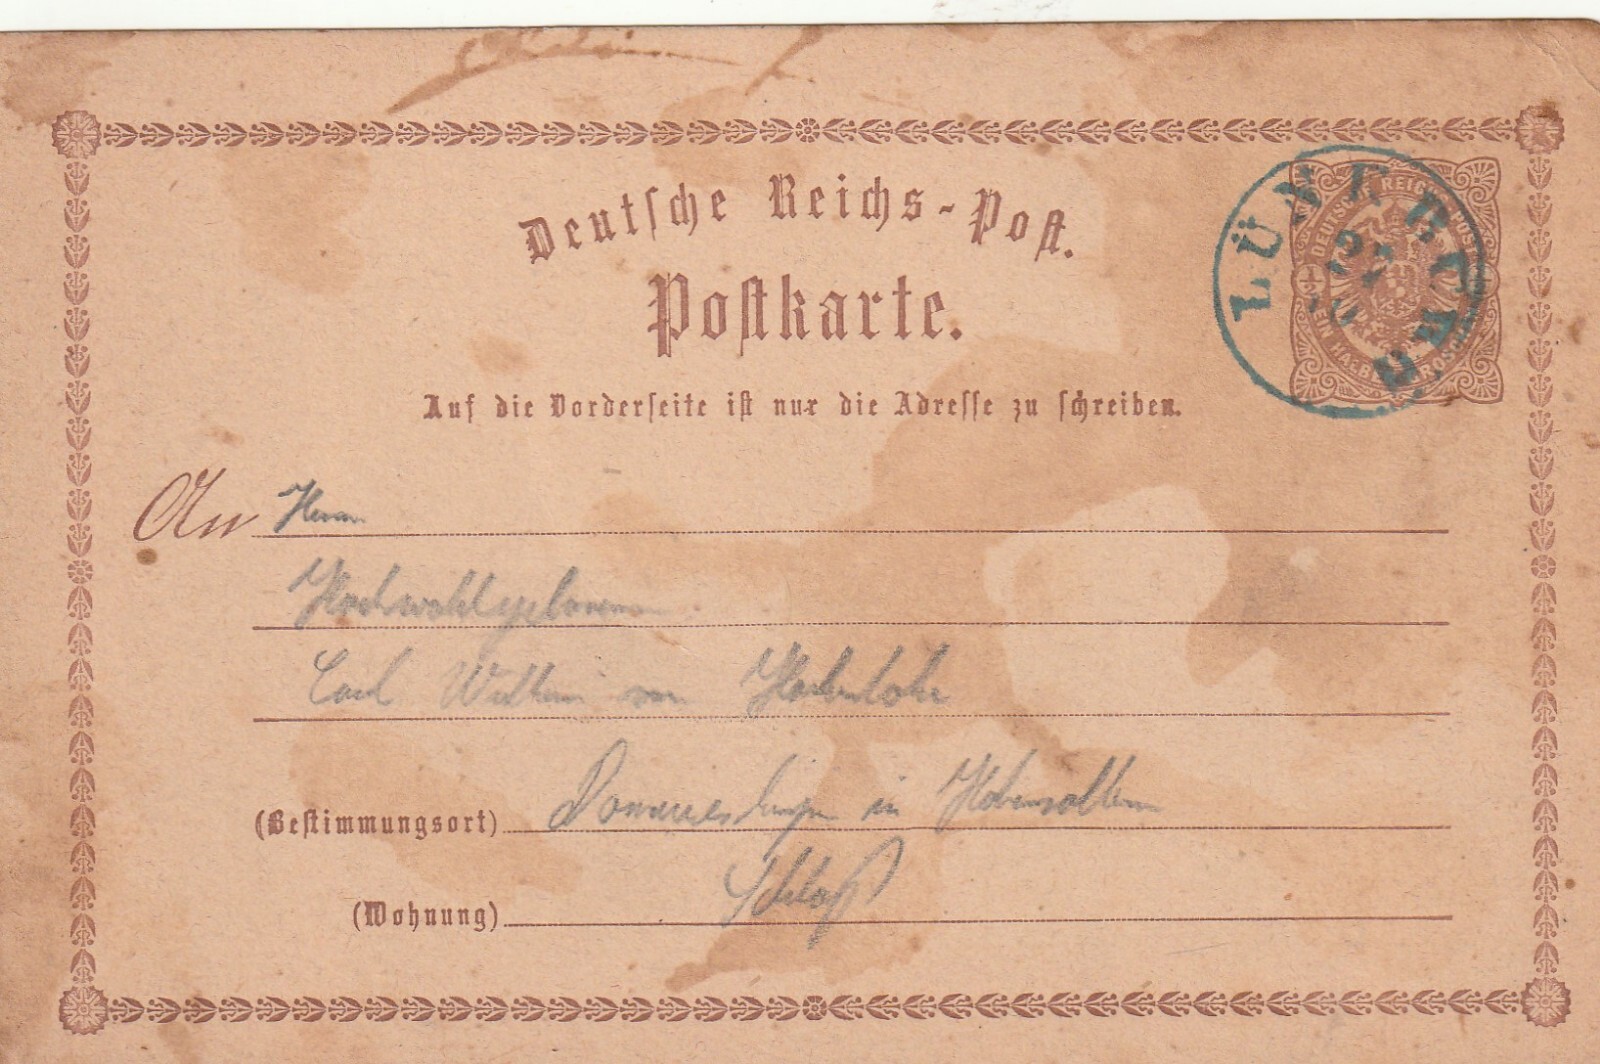 Deutsche Reichs-Post.
Postkarte.
Auf die Vorderseite ist nur die Adresse zu schreiben.
LÜNEBURG
DEUTSCHE REICHSPOST
½ EIN HALBER GROSCHEN ½
An Herrn
Hochwohlgeboren
Carl Wilhelm von Hohenlohe
(Bestimmungsort) Donaueschingen in Hohenzollern
(Wohnung) Schloß